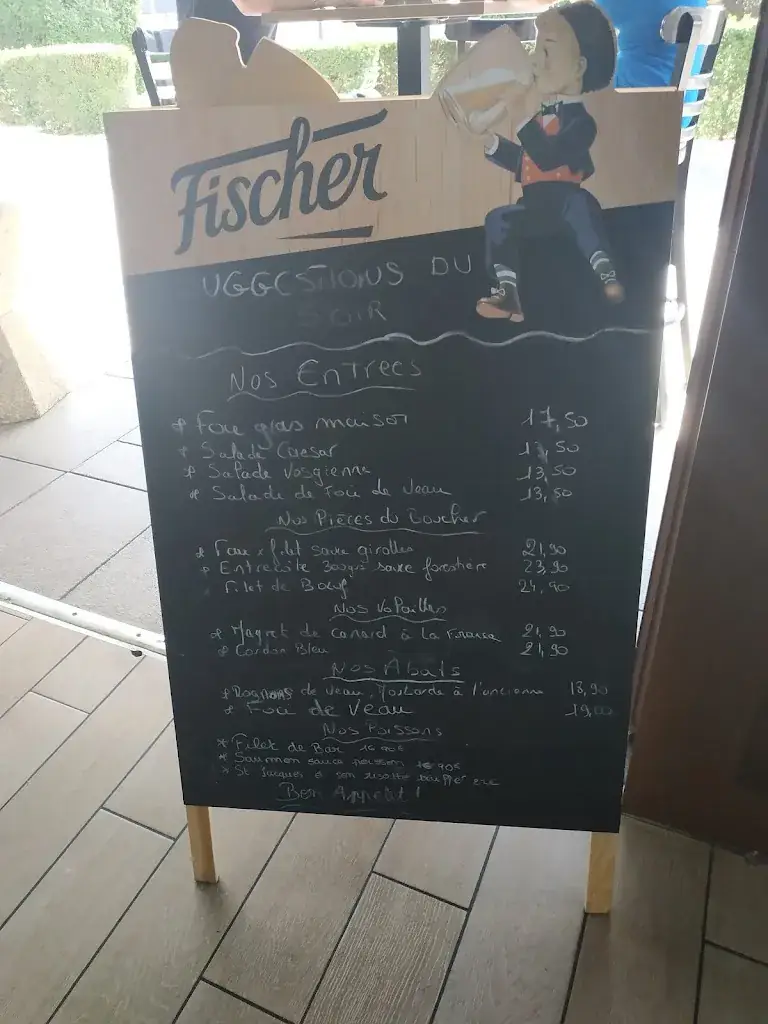 Fischer
UGGESTIONS DU
SOIR
Nos Entrees
* Foie gras maison 17,50
* Salade Caesar 13,50
* Salade Vosgienne 13,50
* Salade de Foie de Veau 13,50
Nos Pièces du Boucher
* Faux filet sauce girolles 21,90
* Entrecôte 300grs sauce forestière 23,90
* Filet de Bœuf 24,90
Nos Volailles
* Magret de canard à la 21,90
* Cordon Bleu 21,90
Nos Abats
* Rognons de Veau, Moutarde à l'ancienne 18,90
* Foie de Veau 19,00
Nos Poissons
* Filet de Bar 16 90€
* Saumon sauce poisson 90€
* St Jacques et son risotto
Bon Appetit!